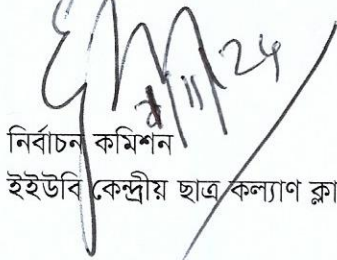 নির্বাচন কমিশন
ইইউবি কেন্দ্রীয় ছাত্র কল্যাণ ক্লা